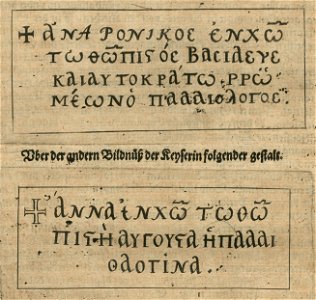 ✠ ἈΝΔΡΟΝΙΚΟΣ ἘΝΧΩ͂
ΤΩΘΩ͂ΠΙϚΌΣ ΒΑΣΙΛΕΥΣ
ΚΑΙΑΥΤΟΚΡΆΤΩ,ΡΡΩ
ΜΈΩΝὉ ΠΑΛΑΙΟΛΟΓΟΣ.
Uber der andern Bildnüß der Keyserin folgender gestalt.
✠ ἌΝΝΑἘΝΧΩ͂ ΤΩΘΩ͂
ΠΙϚῊ ΑΥΓΟΥϚΑ ἩΠΑΛΑΙ
ΟΛΟΓΙΝΑ.